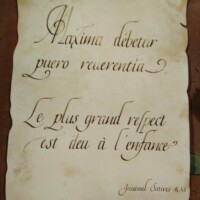 Maxima debetur
puero reverentia
Le plus grand respect
est deu à l'enfance
Juvenal Satires